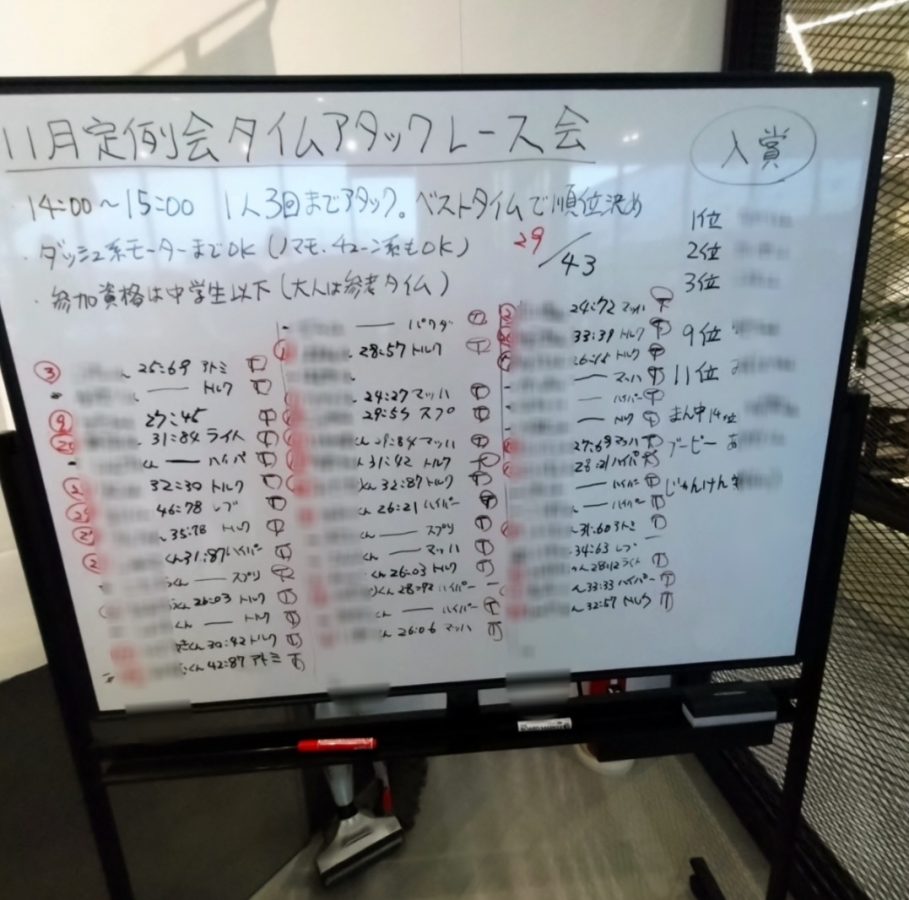 11月定例会タイムアタックレース会
入賞
14:00〜15:00 1人3回までアタック。ベストタイムで順位決め
・ダッシュ系モーターまでOK(ノマモ、チューン系もOK)
29/43
・参加資格は中学生以下(大人は参考タイム)
1位
2位
3位
9位
11位
まん中14位
ブービー
じゃんけん
③ 25:69 アトミ
ー トルク
⑨ 27:45
31:84 ライト
くん ー ハイパ
32:30 トルク
46:78 レブ
35:78 トルク
くん31:87ハイパー
くん ー スプリ
26:03 トルク
くん ー トルク
くん 30:42トルク
くん42:87 アトミ
ー パワダ
28:57 トルク
24:27 マッハ
29:55 スプ
くん 29:84マッハ
31:42 トルク
くん 32:87トルク
くん 26:21 ハイパー
くん ー スプリ
くん ー マッハ
くん 26:03 トルク
くん 28:92 ハイパー
くん ー ハイパー
くん 26:06 マッハ
24:72 マッハ
33:39 トルク
トルク
ー マッハ
ー ハイパー
ー トルク
27:69 マッハ
28:21 ハイパ
ー ハイパー
ー ハイパー
31:60 アトミ
34:63 レブ
くん 28:12 ライト
33:33 ハイパー
32:57 トルク